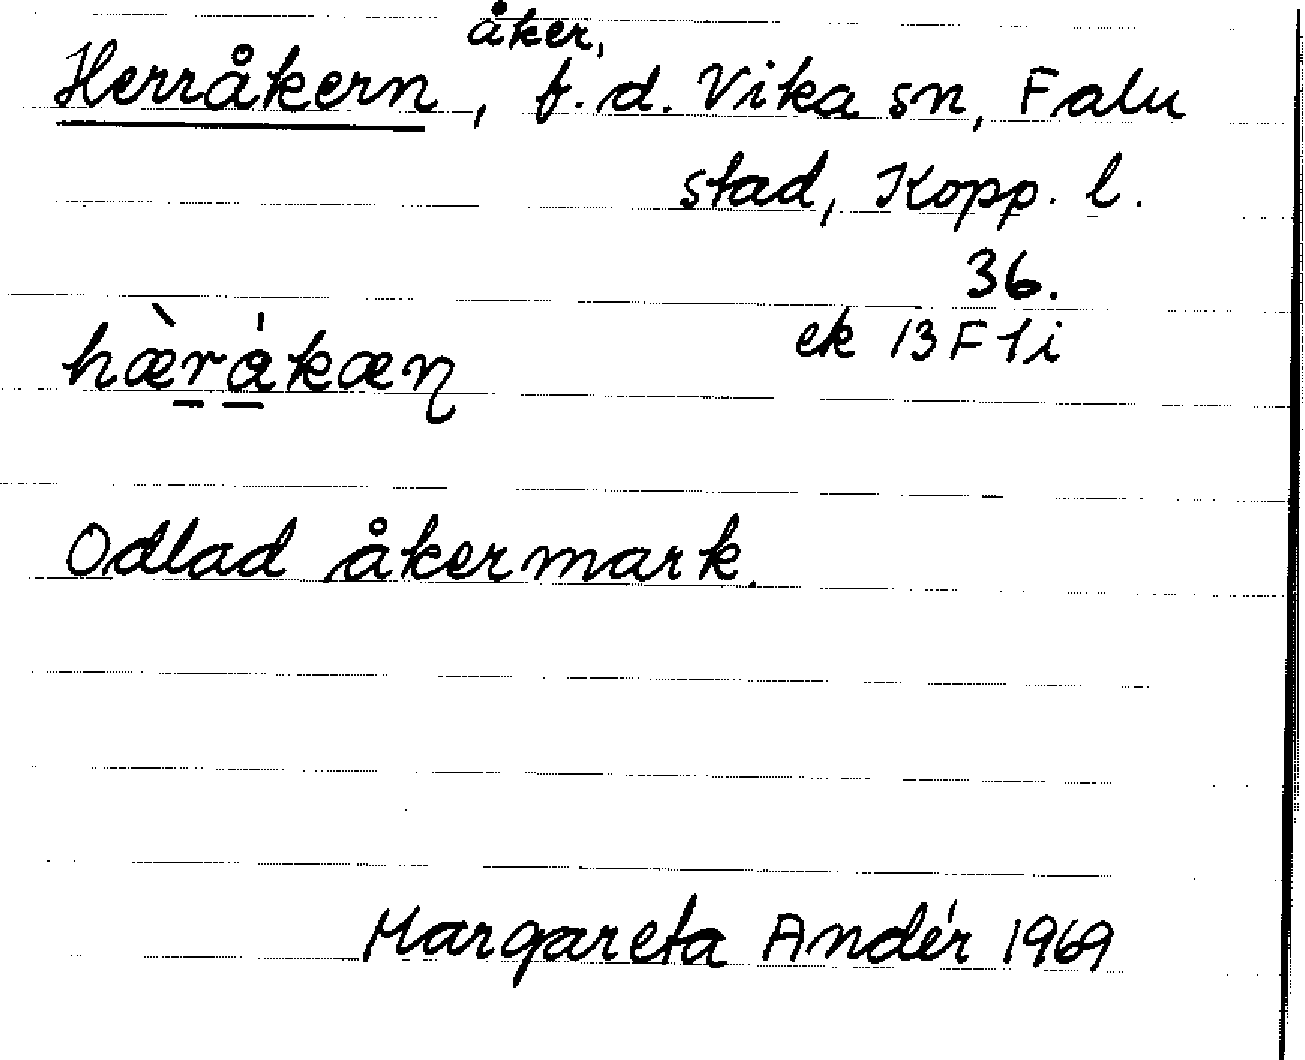 Herråkern, åker, f.d. Vika sn, Falu
stad, Kopp. l.
36.
ek 13F1i
hæ̀r̲ǻ̲kæn̨
Odlad åkermark.
Margareta Andér 1969